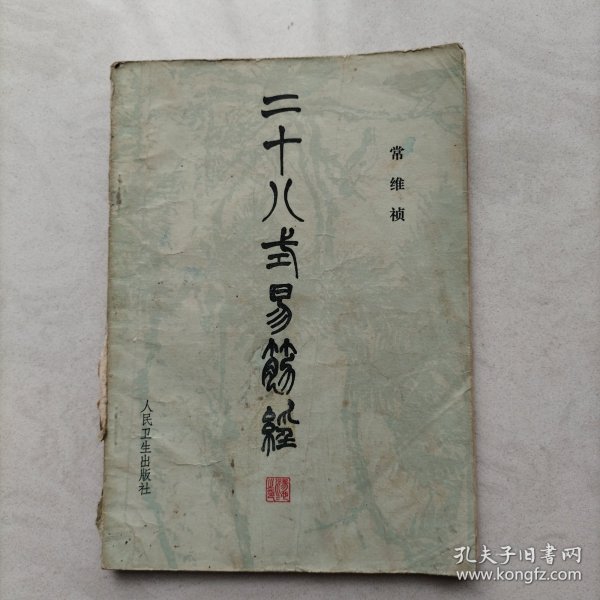 常维祯
二十八式易筋經
人民卫生出版社
孔夫子旧书网
www.kongfz.com